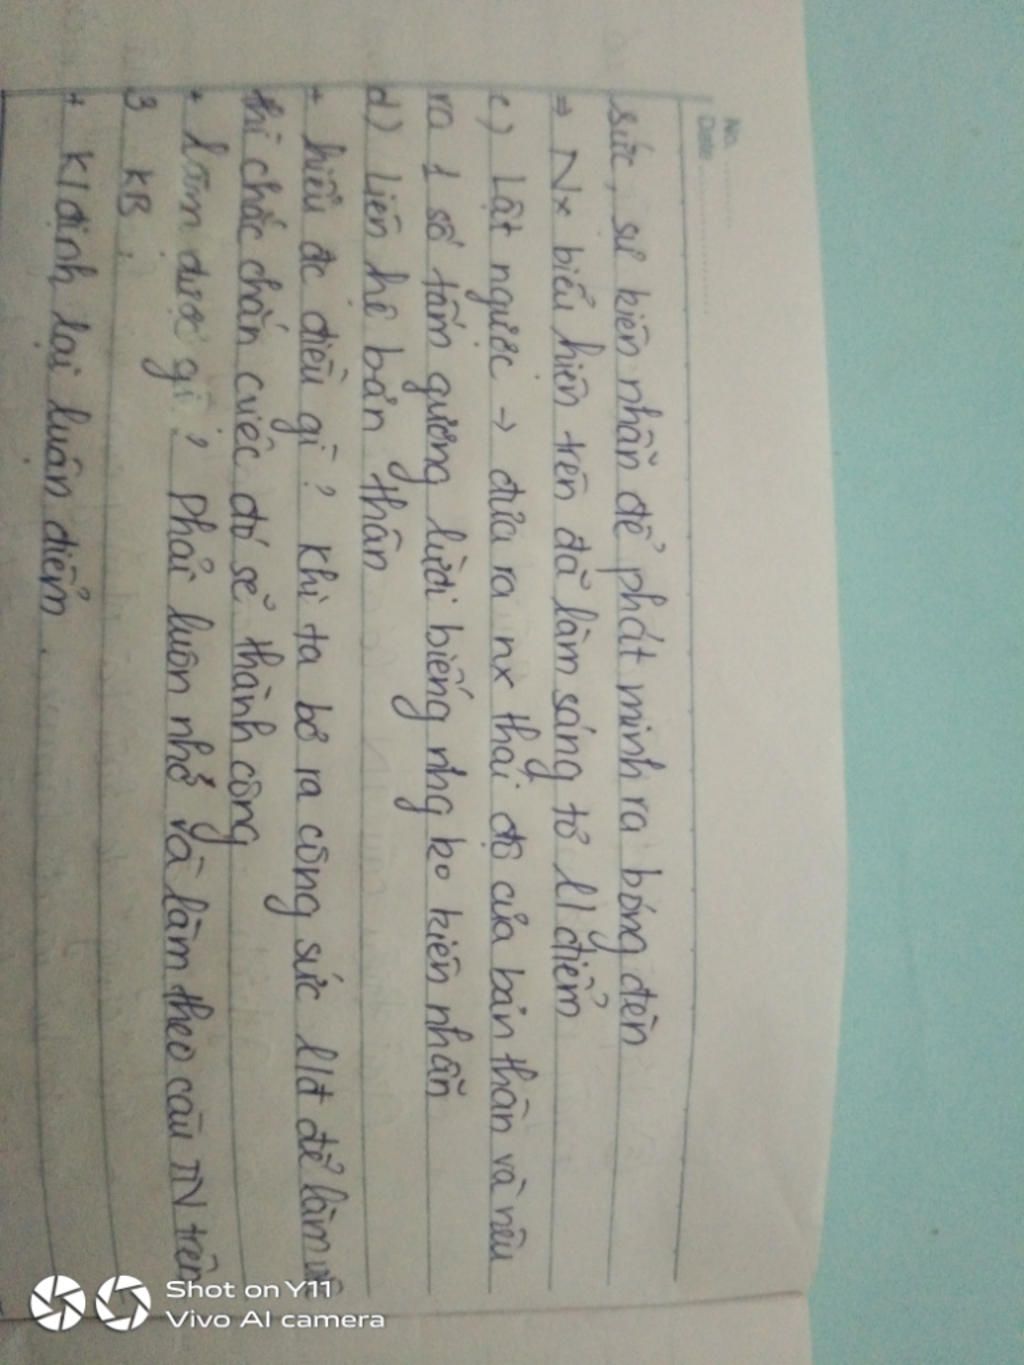 No. ............
Date ............
sức, sự kiên nhẫn để phát minh ra bóng đèn
⇒ Nx biểu hiện trên đã làm sáng tỏ l/điểm
c) Lật ngược → đưa ra nx thái độ của bản thân và nêu
ra 1 số tấm gương lười biếng nhg ko kiên nhẫn
d) Liên hệ bản thân
+ hiểu đc điều gì? Khi ta bỏ ra công sức l/đ để làm
thì chắc chắn cviệc đó sẽ thành công
+ Làm được gì? Phải luôn nhớ và làm theo câu TN trên
3 KB:
+ K/định lại luận điểm.
Shot on Y11
Vivo AI camera